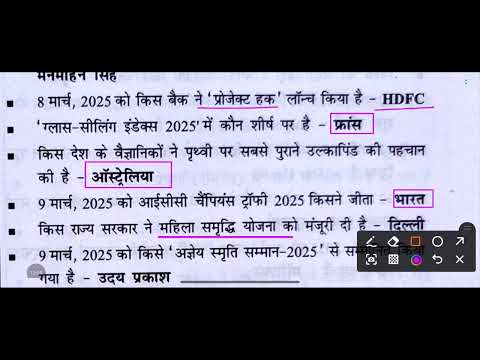 मनमोहन सिंह
8 मार्च, 2025 को किस बैंक ने ‘प्रोजेक्ट हक’ लॉन्च किया है – HDFC
‘ग्लास-सीलिंग इंडेक्स 2025’ में कौन शीर्ष पर है – फ्रांस
किस देश के वैज्ञानिकों ने पृथ्वी पर सबसे पुराने उल्कापिंड की पहचान
की है – ऑस्ट्रेलिया
9 मार्च, 2025 को आईसीसी चैंपियंस ट्रॉफी 2025 किसने जीता – भारत
किस राज्य सरकार ने महिला समृद्धि योजना को मंजूरी दी है – दिल्ली
9 मार्च, 2025 को किसे ‘अज्ञेय स्मृति सम्मान–2025’ से
गया है – उदय प्रकाश